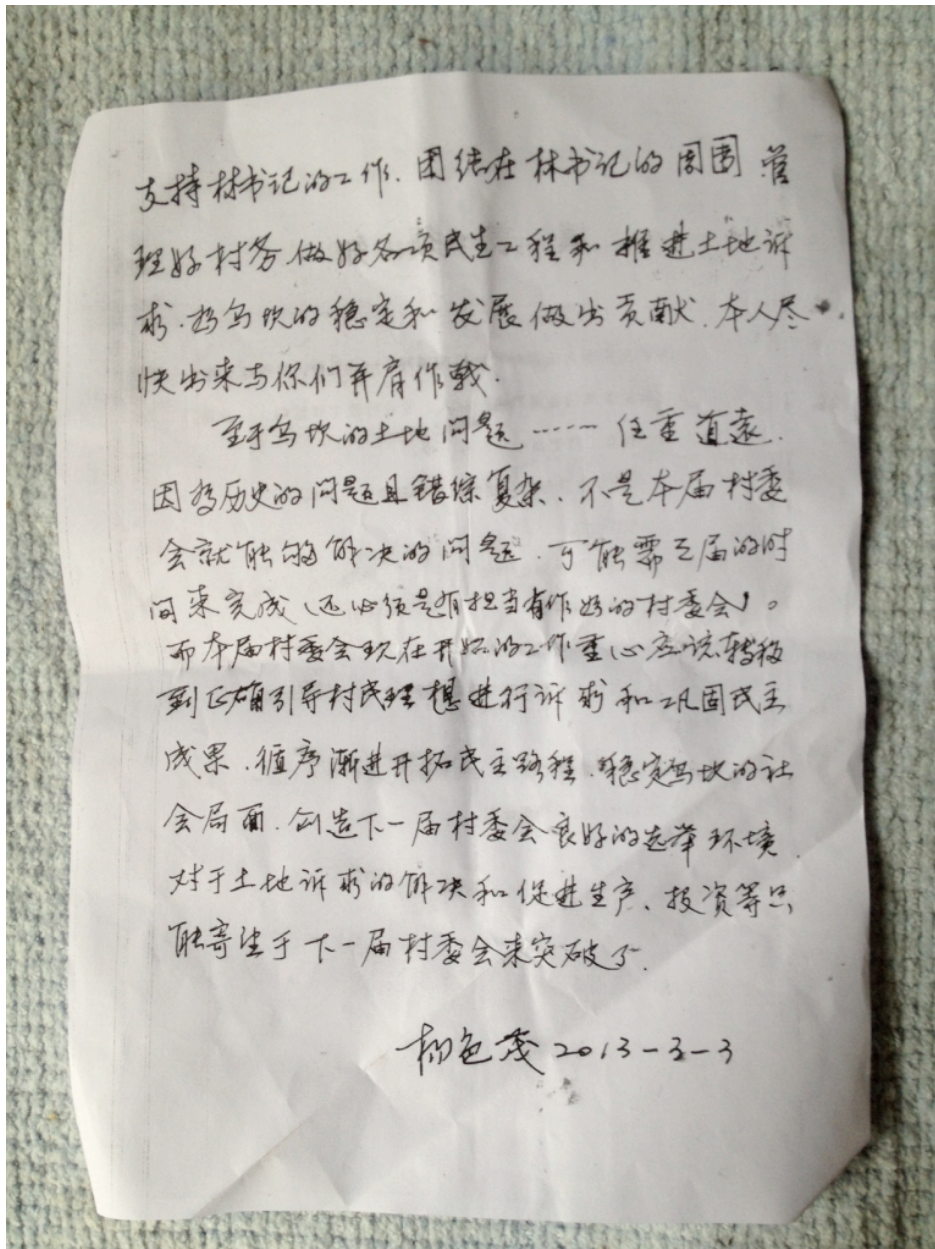 支持林书记的工作、团结在林书记的周围 管
理好村务、做好各项民生工程和推进土地诉
求、为乌坎的稳定和发展做出贡献、本人尽
快出来与你们并肩作战.
至于乌坎的土地问题……任重道远.
因为历史的问题且错综复杂、不是本届村委
会就能够解决的问题、可能需三届的时
间来完成(还必须是有担当有作为的村委会)。
而本届村委会现在开始的工作重心应该转移
到正确引导村民理想进行诉求和巩固民主
成果、循序渐进开拓民主路程、稳定乌坎的社
会局面、创造下一届村委会良好的选举环境
对于土地诉求的解决和促进生产、投资等只
能寄望于下一届村委会来突破了.
杨色茂 2013-3-3